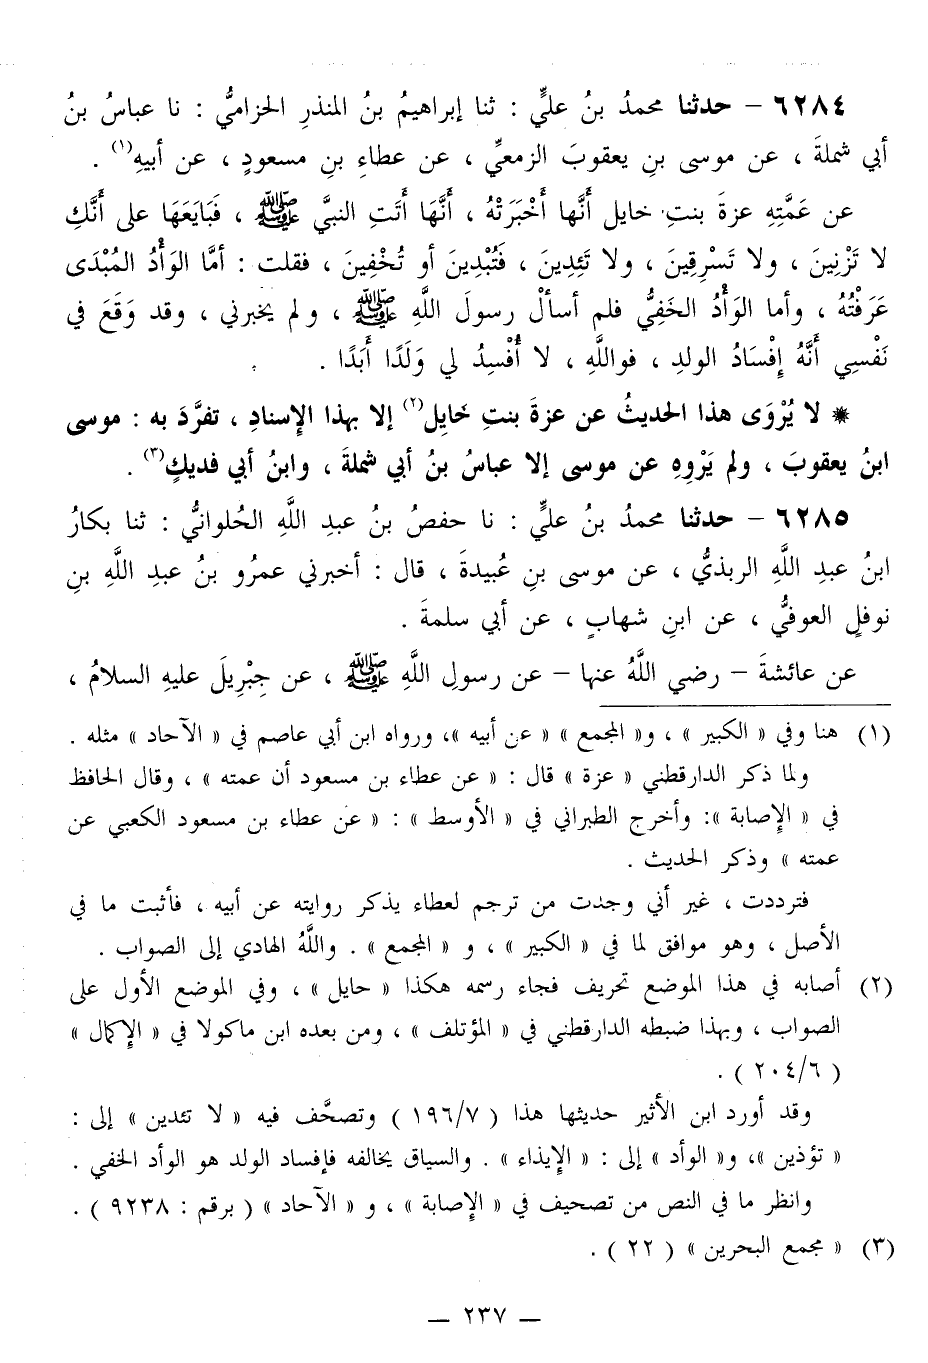 ٦٢٨٤ – حدثنا محمدُ بنُ عليٍّ : ثنا إبراهيمُ بنُ المنذرِ الحزاميُّ : نا عباسُ بنُ
أبي شملةَ ، عن موسى بنِ يعقوبَ الزمعيِّ ، عن عطاءِ بنِ مسعودٍ ، عن أبيهِ(١) .
عن عَمَّتِهِ عزةَ بنتِ خايل أنَّها أَخْبَرَتْهُ ، أَنَّهَا أَتَتِ النبيَّ ﷺ ، فَبَايَعَهَا على أَنَّكِ
لا تَزْنِينَ ، ولا تَسْرِقِينَ ، ولا تَئِدِينَ ، فَتُبْدِينَ أو تُخْفِينَ ، فقلت : أمَّا الوَأْدُ المُبْدَى
عَرَفْتُهُ ، وأما الوَأْدُ الخَفِيُّ فلم أسألْ رسولَ اللَّهِ ﷺ ، ولم يخبرني ، وقد وَقَعَ في
نَفْسِي أَنَّهُ إِفْسَادُ الولدِ ، فواللَّهِ ، لا أُفْسِدُ لي وَلَدًا أَبَدًا .
* لا يُرْوَى هذا الحديثُ عن عزةَ بنتِ خَايِل(٢) إلا بهذا الإسنادِ ، تفرَّدَ به : موسى
ابنُ يعقوبَ ، ولم يَرْوِهِ عن موسى إلا عباسُ بنُ أبي شملةَ ، وابنُ أبي فديكٍ(٣) .
٦٢٨٥ – حدثنا محمدُ بنُ عليٍّ : نا حفصُ بنُ عبدِ اللَّهِ الحُلوانيُّ : ثنا بكارُ
ابنُ عبدِ اللَّهِ الربذيُّ ، عن موسى بنِ عُبيدةَ ، قال : أخبرني عمرُو بنُ عبدِ اللَّهِ بنِ
نوفلٍ العوفيُّ ، عن ابنِ شهابٍ ، عن أبي سلمةَ .
عن عائشةَ – رضي اللَّهُ عنها – عن رسولِ اللَّهِ ﷺ ، عن جِبْرِيلَ عليهِ السلامُ ،
(١) هنا وفي « الكبير » ، و« المجمع » « عن أبيه »، ورواه ابن أبي عاصم في « الآحاد » مثله .
ولما ذكر الدارقطني « عزة » قال : « عن عطاء بن مسعود أن عمته » ، وقال الحافظ
في « الإصابة »: وأخرج الطبراني في « الأوسط » : « عن عطاء بن مسعود الكعبي عن
عمته » وذكر الحديث .
فترددت ، غير أني وجدت من ترجم لعطاء يذكر روايته عن أبيه ، فأثبت ما في
الأصل ، وهو موافق لما في « الكبير » ، و « المجمع » . واللَّهُ الهادي إلى الصواب .
(٢) أصابه في هذا الموضع تحريف فجاء رسمه هكذا « حايل » ، وفي الموضع الأول على
الصواب ، وبهذا ضبطه الدارقطني في « المؤتلف » ، ومن بعده ابن ماكولا في « الإكمال »
( ٢٠٤/٦ ) .
وقد أورد ابن الأثير حديثها هذا ( ١٩٦/٧ ) وتصحَّف فيه « لا تئدين » إلى :
« تؤذين »، و« الوأد » إلى : « الإيذاء » . والسياق يخالفه فإفساد الولد هو الوأد الخفي .
وانظر ما في النص من تصحيف في « الإصابة » ، و « الآحاد » ( برقم : ٩٢٣٨ ) .
(٣) « مجمع البحرين » ( ٢٢ ) .
– ٢٣٧ –